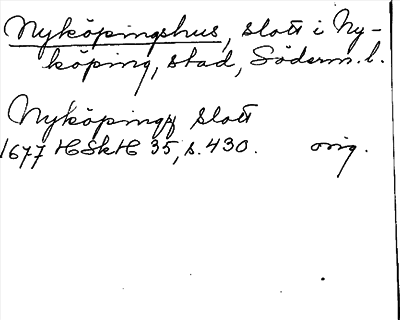 Nyköpingshus, slott i Ny-
köping, stad, Söderm. l.
Nyköpings slott
1677 HSkH 35, s. 430. orig.